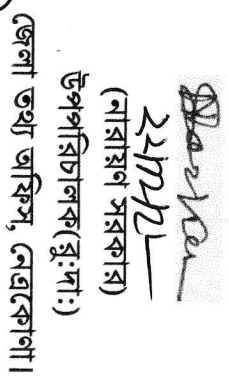 (নারায়ণ সরকার)
উপপরিচালক(রু:দা:)
জেলা তথ্য অফিস, নেত্রকোণা।